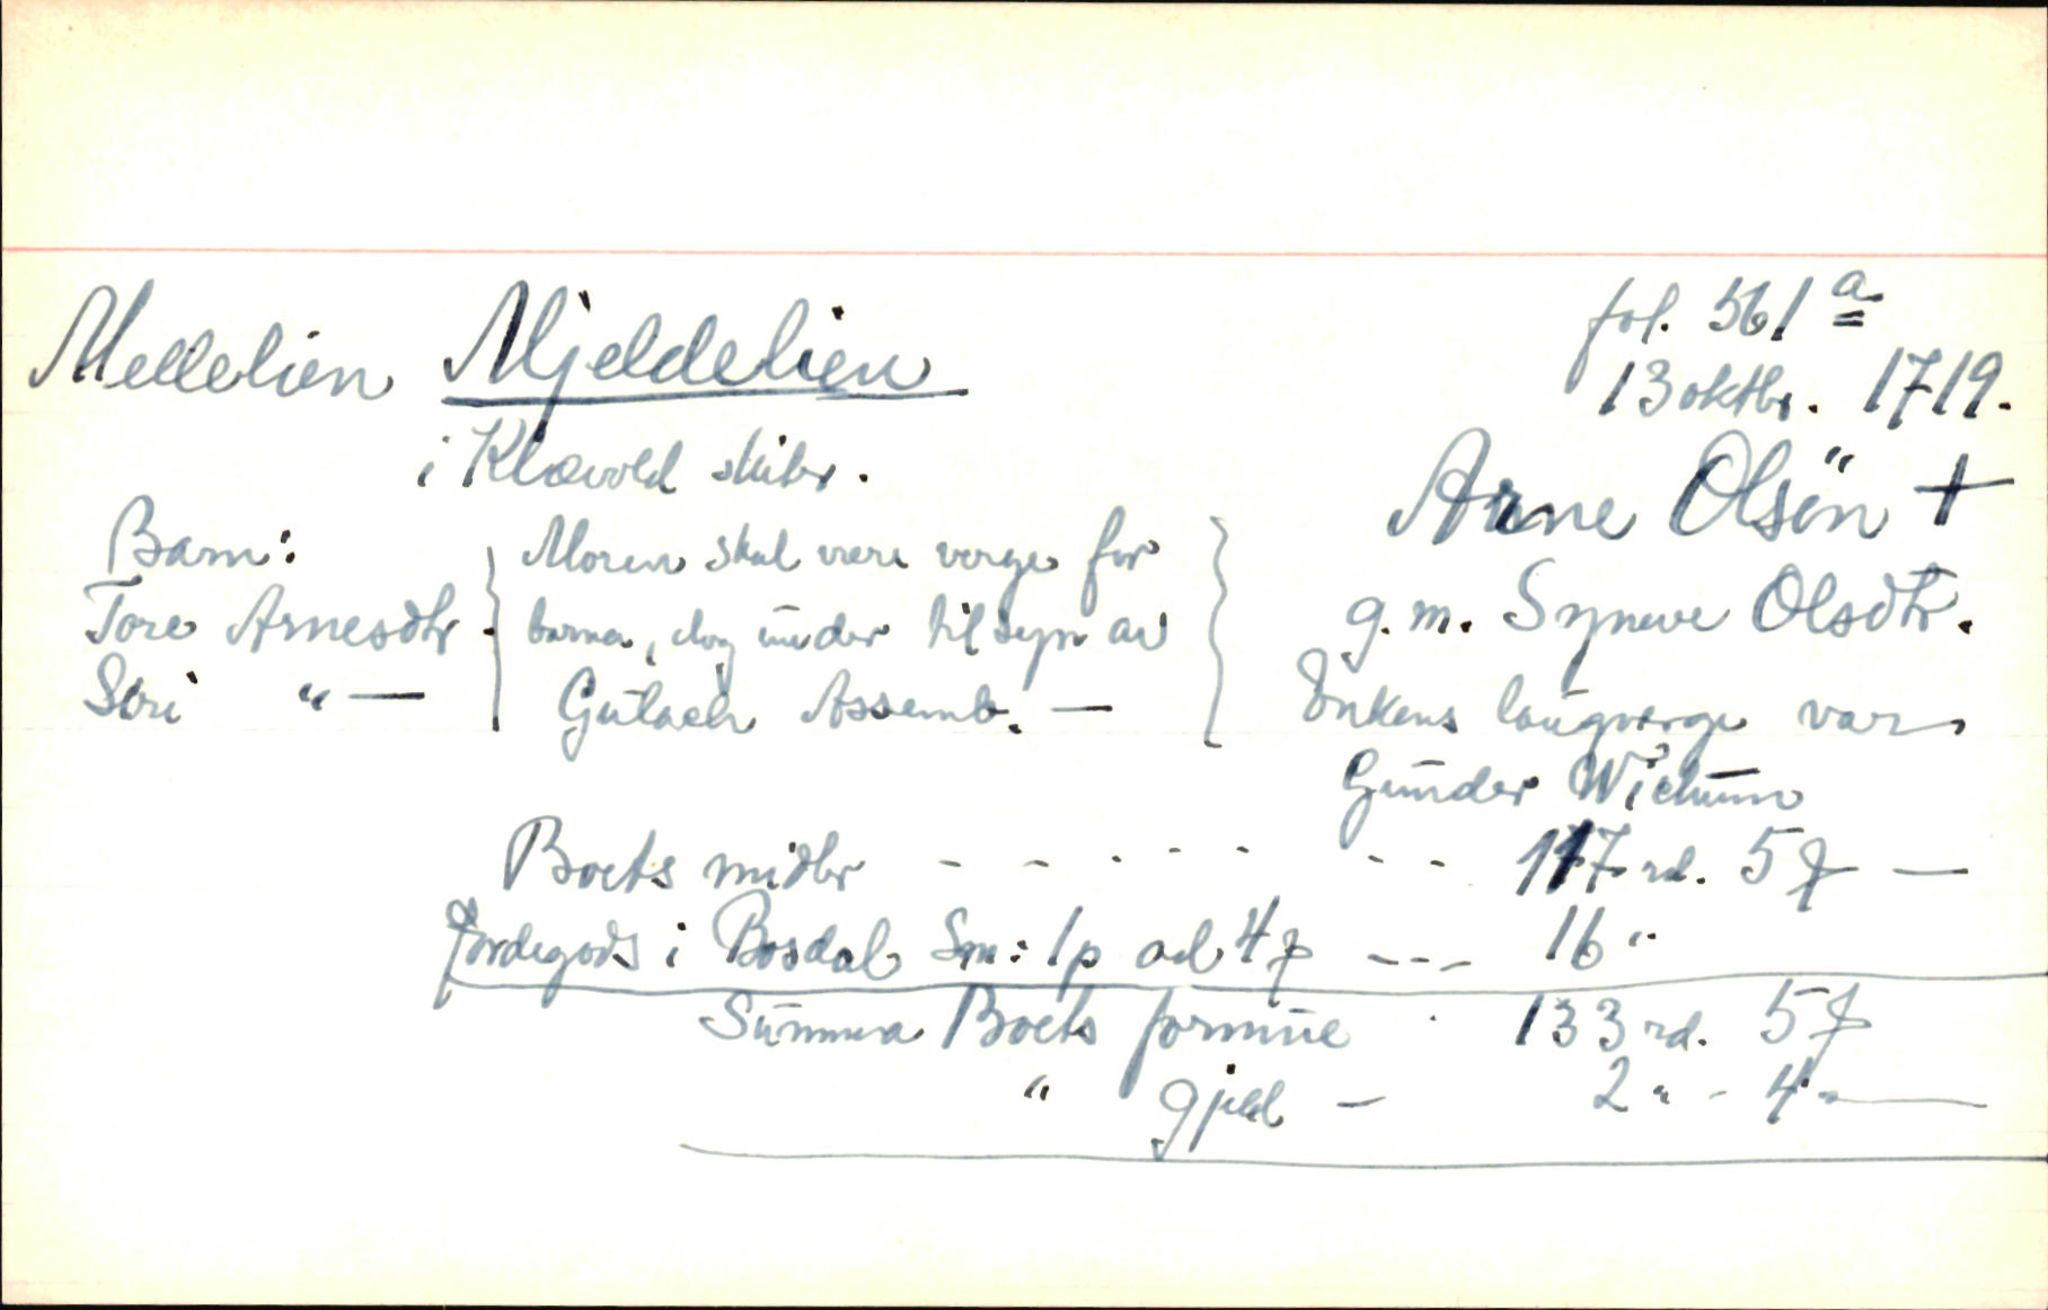 fol. 561 a
Mellelien Mjeldelien 13 oktbr. 1719.
i Klævold skibr.
Arne Olsen +
g.m. Syneve Olsdtr.
Enkens laugverge var
Gunder Wichum
Barn:
Tore Arnesdtr.
Siri " —
Moren skal være verge for
barna, dog under tilsyn av
Gulach Assemb. —
Boets midler - - - - - - - - 117 rd. 5 ƒ —
Jordegods i Bosdal Sm: 1 p ad 4 ƒ --- 16 "
Summa Boets formue - 133 rd. 5 ƒ
" gjeld — 2 " - 4 " —